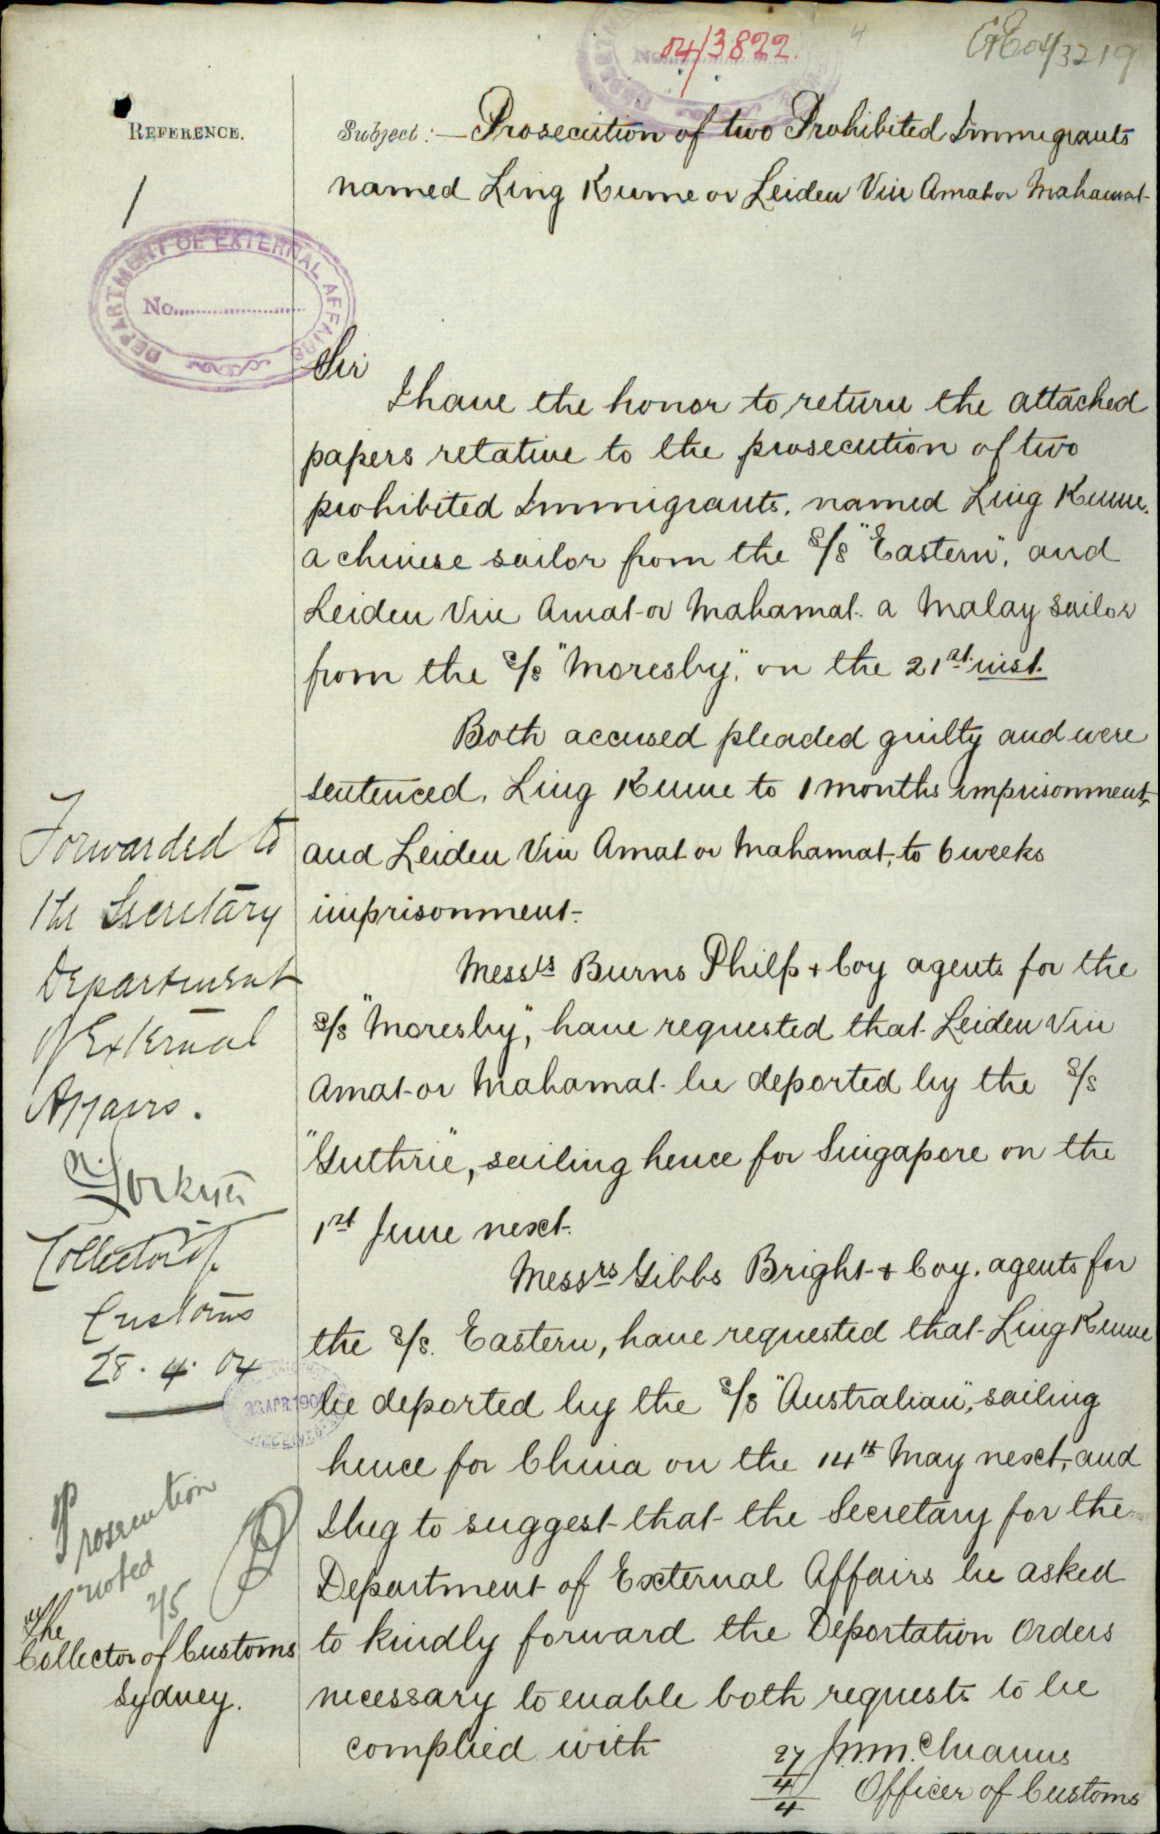 04/3822.
4
04/3219
REFERENCE.
1
DEPARTMENT OF EXTERNAL AFFAIRS
No.
Subject:— Prosecution of two Prohibited Immigrants
named Ling Kume or Leiden Vin Amat or Mahamat-
Sir
I have the honor to return the attached
papers relative to the prosecution of two
prohibited Immigrants, named Ling Kume,
a chinese sailor from the S/S "Eastern", and
Leiden Vin Amat or Mahamat. a Malay Sailor
from the S/S "Moresby," on the 21st inst.
Both accused pleaded guilty and were
sentenced. Ling Kume to 1 months imprisonment,
and Leiden Vin Amat or Mahamat, to 6 weeks
imprisonment-
Messrs Burns Philp + Coy agents for the
S/S "Moresby", have requested that Leiden Vin
Amat or Mahamat be deported by the S/S
"Guthrie", sailing hence for Singapore on the
1st June next.
Messrs Gibbs Bright + Coy. agents for
the S/S. Eastern, have requested that Ling Kume
be deported by the S/S "Australian", sailing
hence for China on the 14th May next, and
I beg to suggest that the Secretary for the
Department of External Affairs be asked
to kindly forward the Deportation Orders
necessary to enable both requests to be
complied with
27/4/4
Officer of Customs
Forwarded to
the Secretary
Department
of External
Affairs.
Collector of
Customs
28.4.04
APR 190
RECEIVED
Prosecution
noted
2/5
The
Collector of Customs
Sydney.